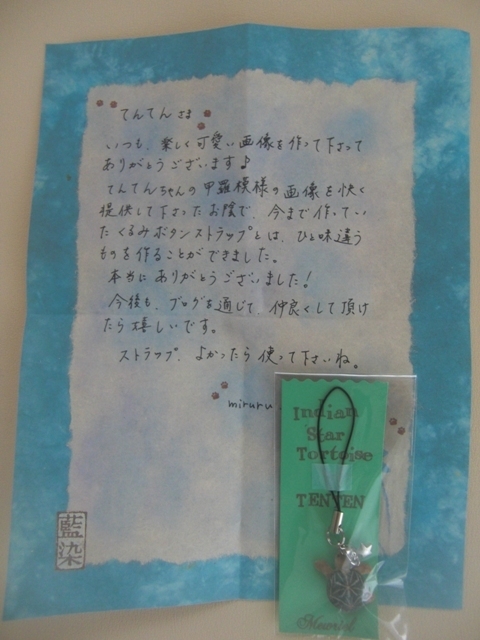 てんてんさま
いつも、楽しく可愛い画像を作って下さって
ありがとうございます♪
てんてんちゃんの甲羅模様の画像を快く
提供して下さったお陰で、今まで作ってい
たくるみボタンストラップとは、ひと味違う
ものを作ることができました。
本当にありがとうございました!
今後も、ブログを通じて、仲良くして頂け
たら嬉しいです。
ストラップ、よかったら使って下さいね。
miruru
藍染
Indian
Star
Tortoise
TENTEN